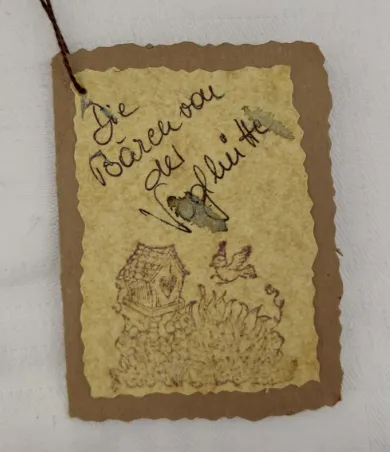 Die
Bären von
der
Voglhütte